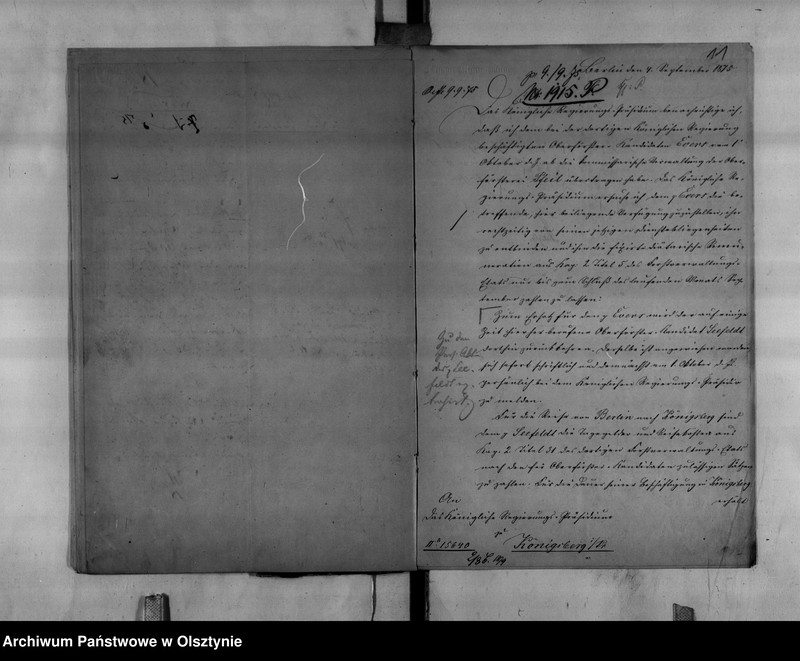 11
pr 9./9. 75. Berlin den 4. September 1875
No 1915. P.
Das Königliche Regierungs-Präsidium benachrichtige ich,
daß ich dem bei der dortigen Königlichen Regierung
beschäftigten Oberförster-Kandidaten Evers vom 1.
Oktober d. J. ab die kommissarische Verwaltung der Ober-
försterei übertragen habe. Das Königliche Re-
gierungs-Präsidium ersuche ich, dem p. Evers die be-
treffende, hier beiliegende Verfügung zuzustellen, ihn
rechtzeitig von seinen jetzigen Dienstobliegenheiten
zu entbinden und ihm die fixirte diätarische Remu-
neration aus Kap. 2 Titel 5 des Forstverwaltungs-
Etats nur bis zum Schluß des laufenden Monats Sep-
tember zahlen zu lassen.
Zum Ersatz für den p. Evers wird der auf einige
Zeit hierher berufene Oberförster-Kandidat Seefeldt
dorthin zurückkehren. Derselbe ist angewiesen worden
sich sofort schriftlich und demnächst am 1. Oktober d. J.
persönlich bei dem Königlichen Regierungs-Präsidio
zu melden.
Zu den
Für die Reise von Berlin nach Königsberg sind
dem p. Seefeldt die Tagegelder und Reisekosten aus
Kap. 2 Titel 31 des dortigen Forstverwaltungs-Etats
nach den für Oberförster-Kandidaten zulässigen Sätzen
zu zahlen. Für die Dauer seiner Beschäftigung in Königsberg
erhält
An
das Königliche Regierungs-Präsidium
zu
Königsberg i/Pr
15640
Archiwum Państwowe w Olsztynie